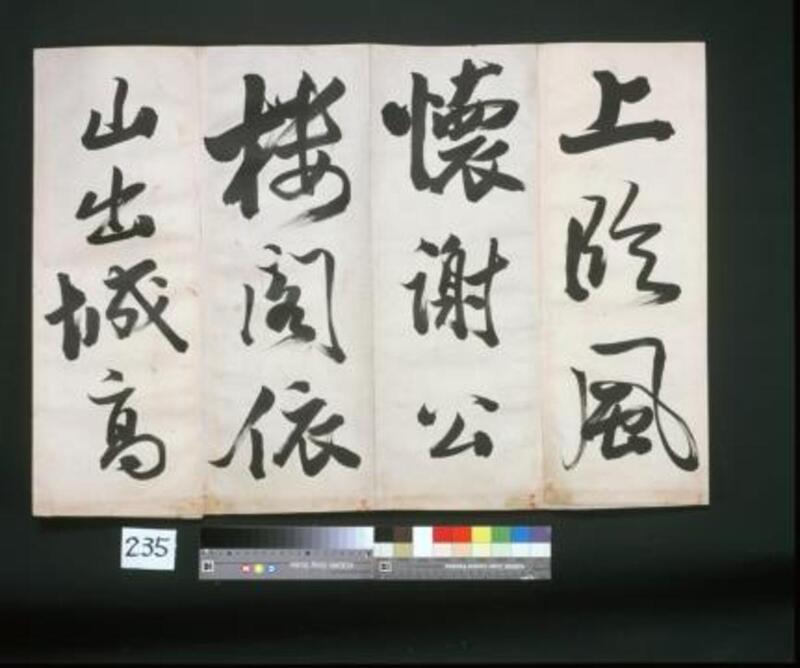 上臨風
懷謝公
樓閣依
山出城高
235